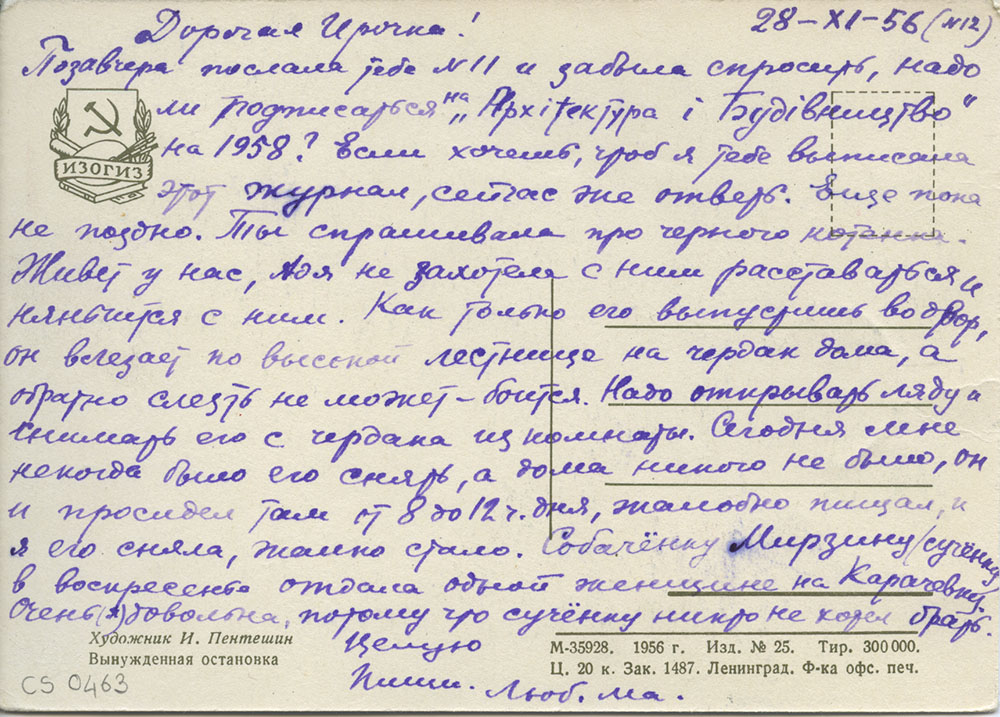 28-XI-56 (N12)
Дорогая Ирочка!
Позавчера послала тебе N11 и забыла спросить, надо
ли подписаться на „Архітектура і Будівництво"
на 1958? Если хочешь, чтоб я тебе выписала
этот журнал, сейчас же ответь. Еще пока
не поздно. Ты спрашивала про черного котенка.
Живет у нас, Адя не захотела с ним расставаться и
няньчится с ним. Как только его выпустишь во двор,
он влезает по высокой лестнице на чердак дома, а
обратно слезть не может - боится. Надо открывать ляду и
снимать его с чердака из комнаты. Сегодня мне
некогда было его снять, а дома никого не было, он
и просидел там от 8 до 12 ч. дня, жалобно пищал, и
я его сняла, жалко стало. Собачёнку Мирзину (сучёнку)
в воскресенье отдала одной женщине на Карачовку.
Очень (я) довольна, потому что сучёнку никто не хотел брать.
Целую
Пиши. Люб. Ма.
ИЗОГИЗ
Художник И. Пентешин
Вынужденная остановка
М-35928. 1956 г. Изд. № 25. Тир. 300 000.
Ц. 20 к. Зак. 1487. Ленинград. Ф-ка офс. печ.
CS 0463